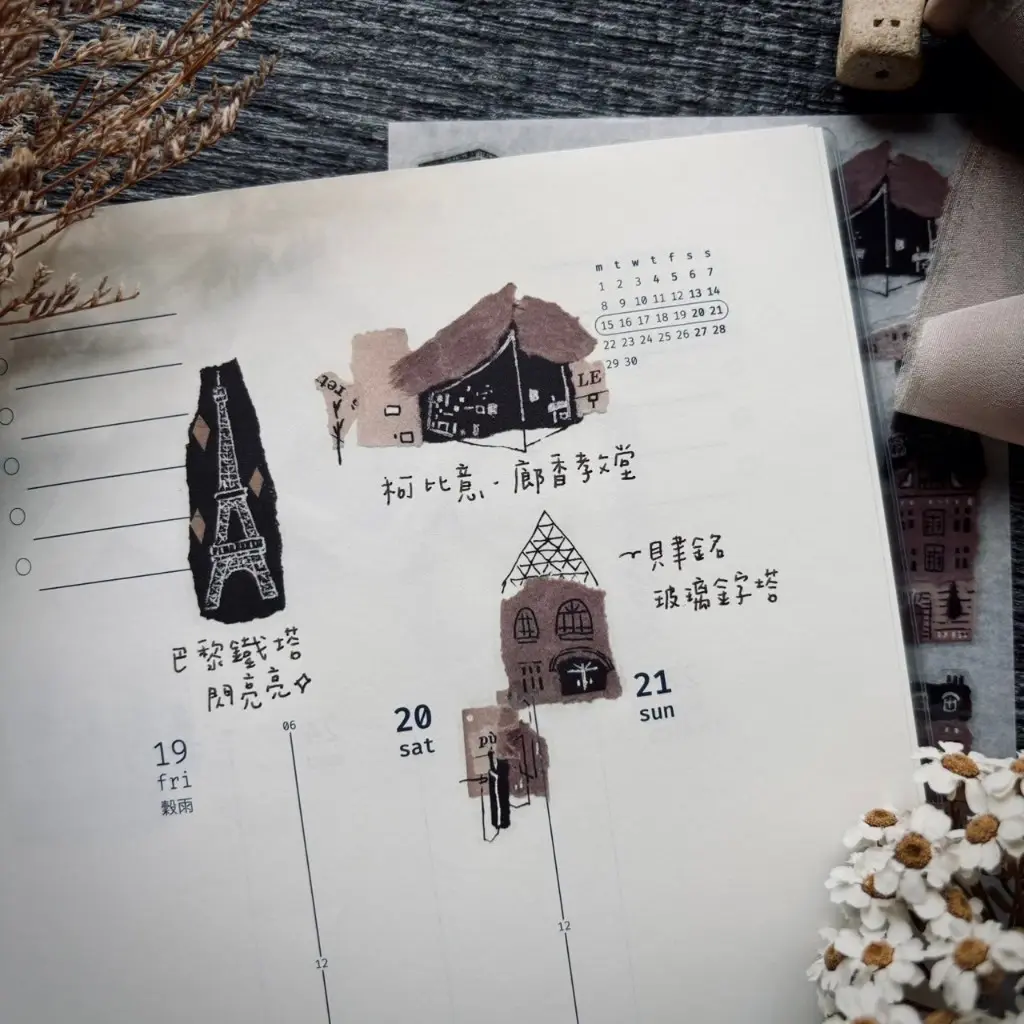 m t w t f s s
1 2 3 4 5 6 7
8 9 10 11 12 13 14
15 16 17 18 19 20 21
22 23 24 25 26 27 28
29 30
ret
LE
柯比意·廊香教堂
~貝聿銘
玻璃金字塔
巴黎鐵塔
閃亮亮
pù
19
fri
穀雨
06
12
20
sat
21
sun
12